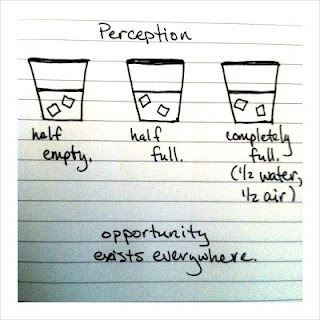 Perception
half empty.
half full.
completely full. (1/2 water, 1/2 air)
opportunity
exists everywhere.